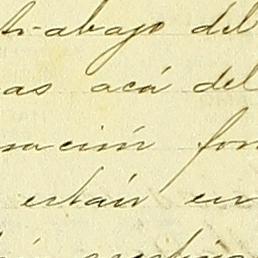 trabajo del
as acá del
nación for
están en